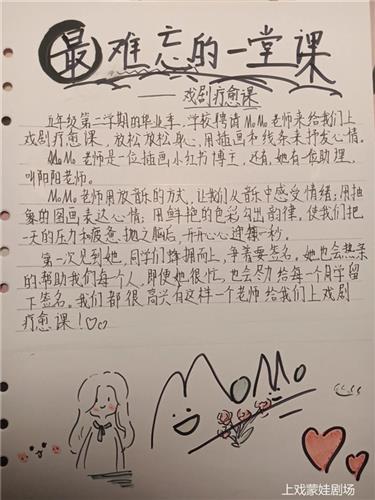 最难忘的一堂课
——戏剧疗愈课
五年级第二学期的毕业季，学校聘请MoMo老师来给我们上
戏剧疗愈课，放松放松身心，用插画和线条来抒发心情。
MoMo老师是一位插画小红书博主，还有她有一位助理，
叫阳阳老师。
MoMo老师用放音乐的方式，让我们从音乐中感受情绪；用抽
象的图画表达心情；用鲜艳的色彩勾出韵律，使我们把
一天的压力和疲惫抛之脑后，开开心心过每一秒。
第一次见到她，同学们蜂拥而上，争着要签名，她也会热亲
的帮助我们每个人，即使她很忙，也会尽力给每一个同学留
下签名。我们都很高兴有这样一个老师给我们上戏剧
疗愈课！
MoMo
上戏蒙娃剧场